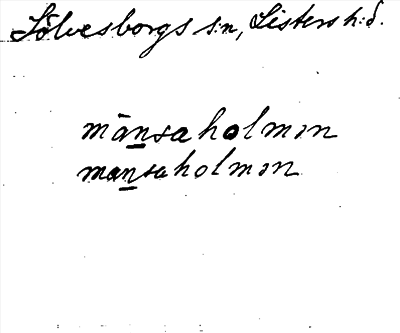 Sölvesborgs s:n, Listers h:d.
mànsaholmən
mansaholmən